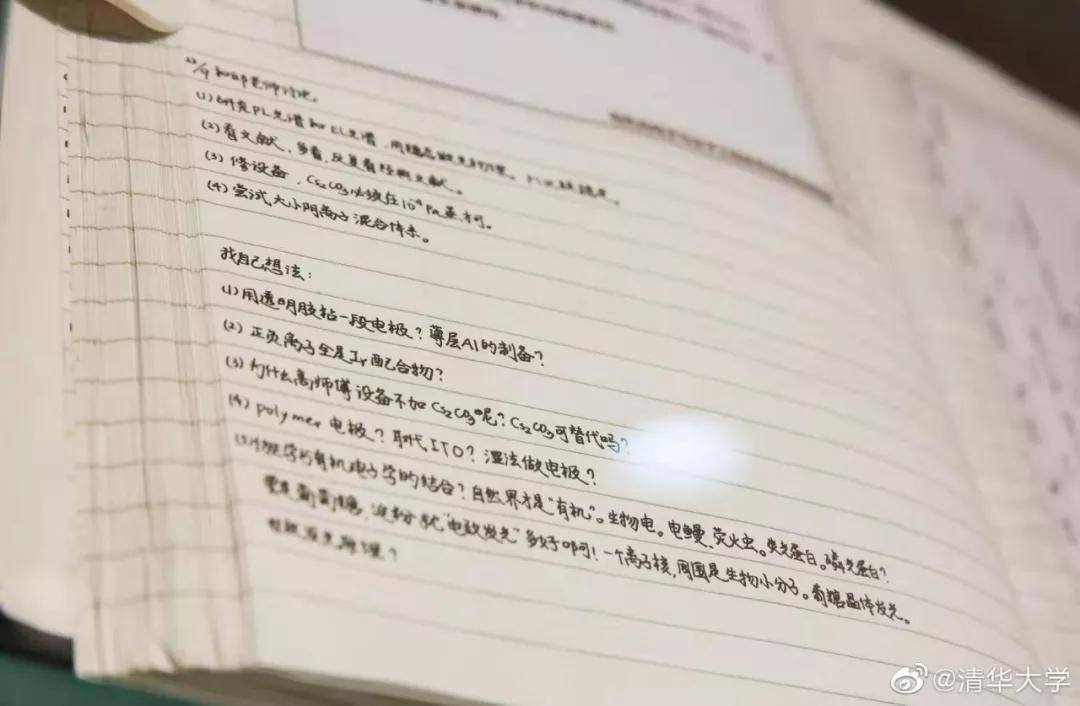 (1) 研究PL光谱和EL光谱
(2) 看文献，多看，反复看经典文献。
(3) 修设备，Cs₂CO₃必须在10⁻⁴Pa蒸才可。
(4) 尝试大小阴离子混合体系。
我自己想法：
(1) 用透明胶粘一段电极？薄层Al的制备？
(2) 正负离子全是Ir配合物？
(3) 为什么高师傅设备不加Cs₂CO₃呢？Cs₂CO₃可替代吗？
(4) polymer电极？取代ITO？湿法做电极？
学与有机电子学的结合？自然界才是“有机”。生物电。电鳗、荧火虫。荧光蛋白。磷光蛋白？
葡萄糖、淀粉就“电致发光”多好啊！一个离子核，周围是生物小分子。葡糖晶体发光。
@清华大学